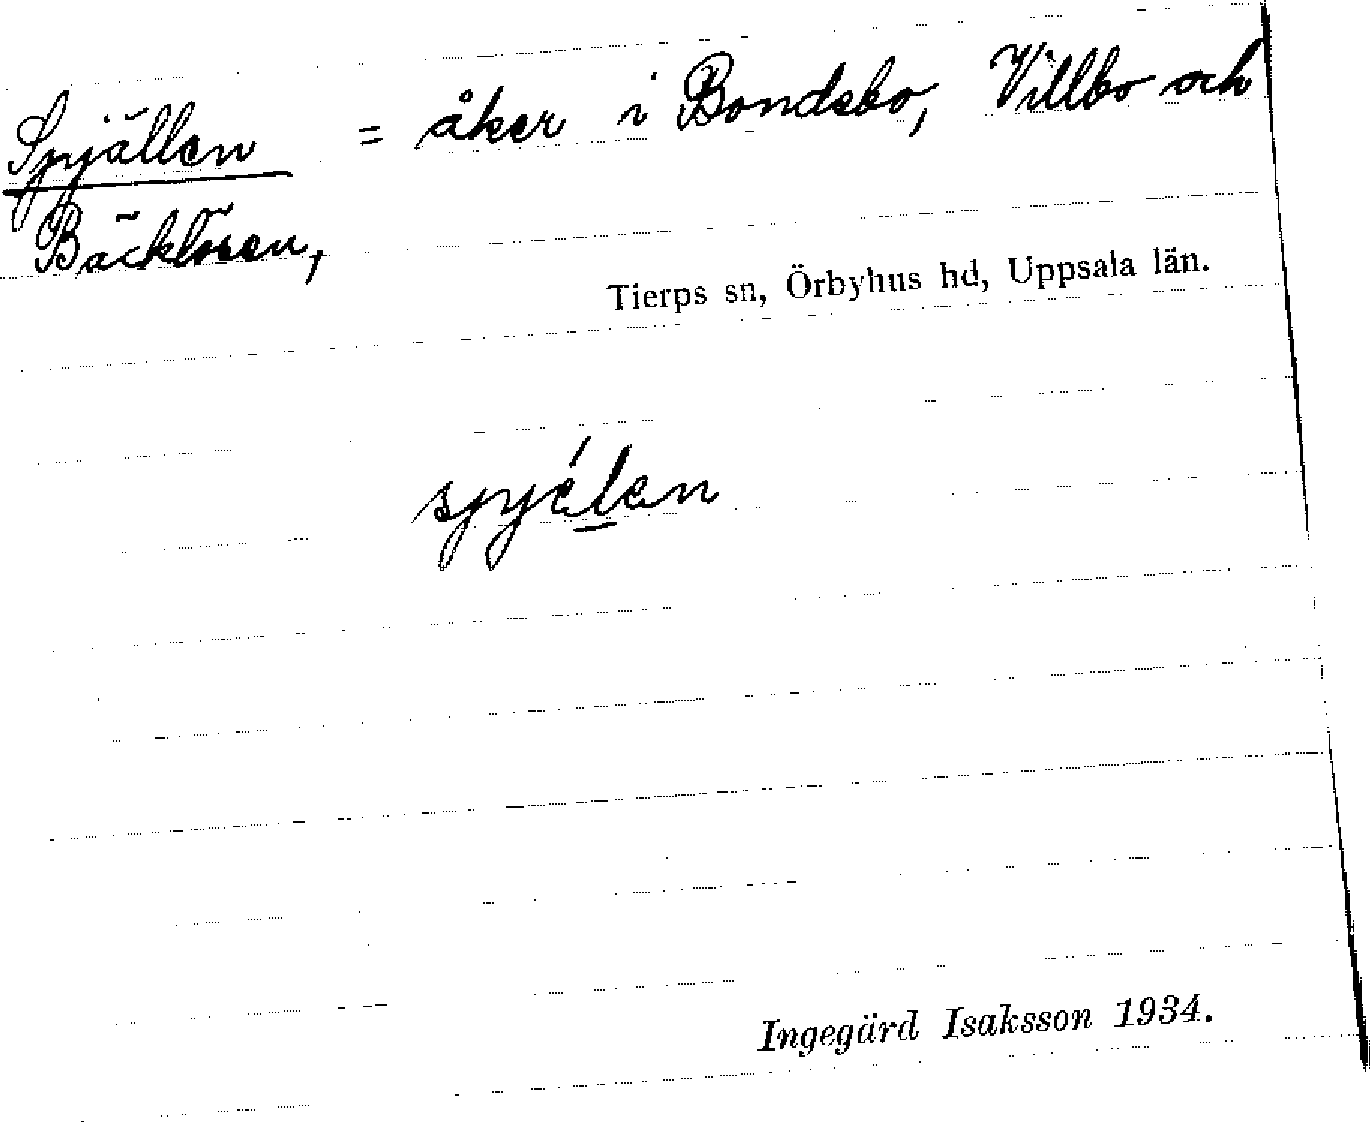 Spjällen = åker i Bondsbo, Villbo och
Bäcklösen,
Tierps sn, Örbyhus hd, Uppsala län.
spjélen
Ingegärd Isaksson 1934.